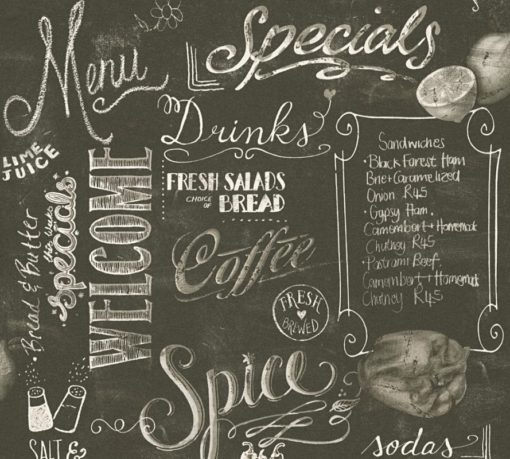 Menu
Specials
Drinks
LIME
JUICE
WELCOME
this weeks
specials
Bread & Butter
FRESH SALADS
CHOICE
OF
BREAD
Coffee
FRESH
BREWED
Sandwiches
• Black Forest Ham
Brie + Caramelized
Onion R45
• Gypsy Ham,
Camembert + Homemade
Chutney R45
• Pastrami Beef,
Camembert + Homemade
Chutney R45
Spice
SALT &
sodas